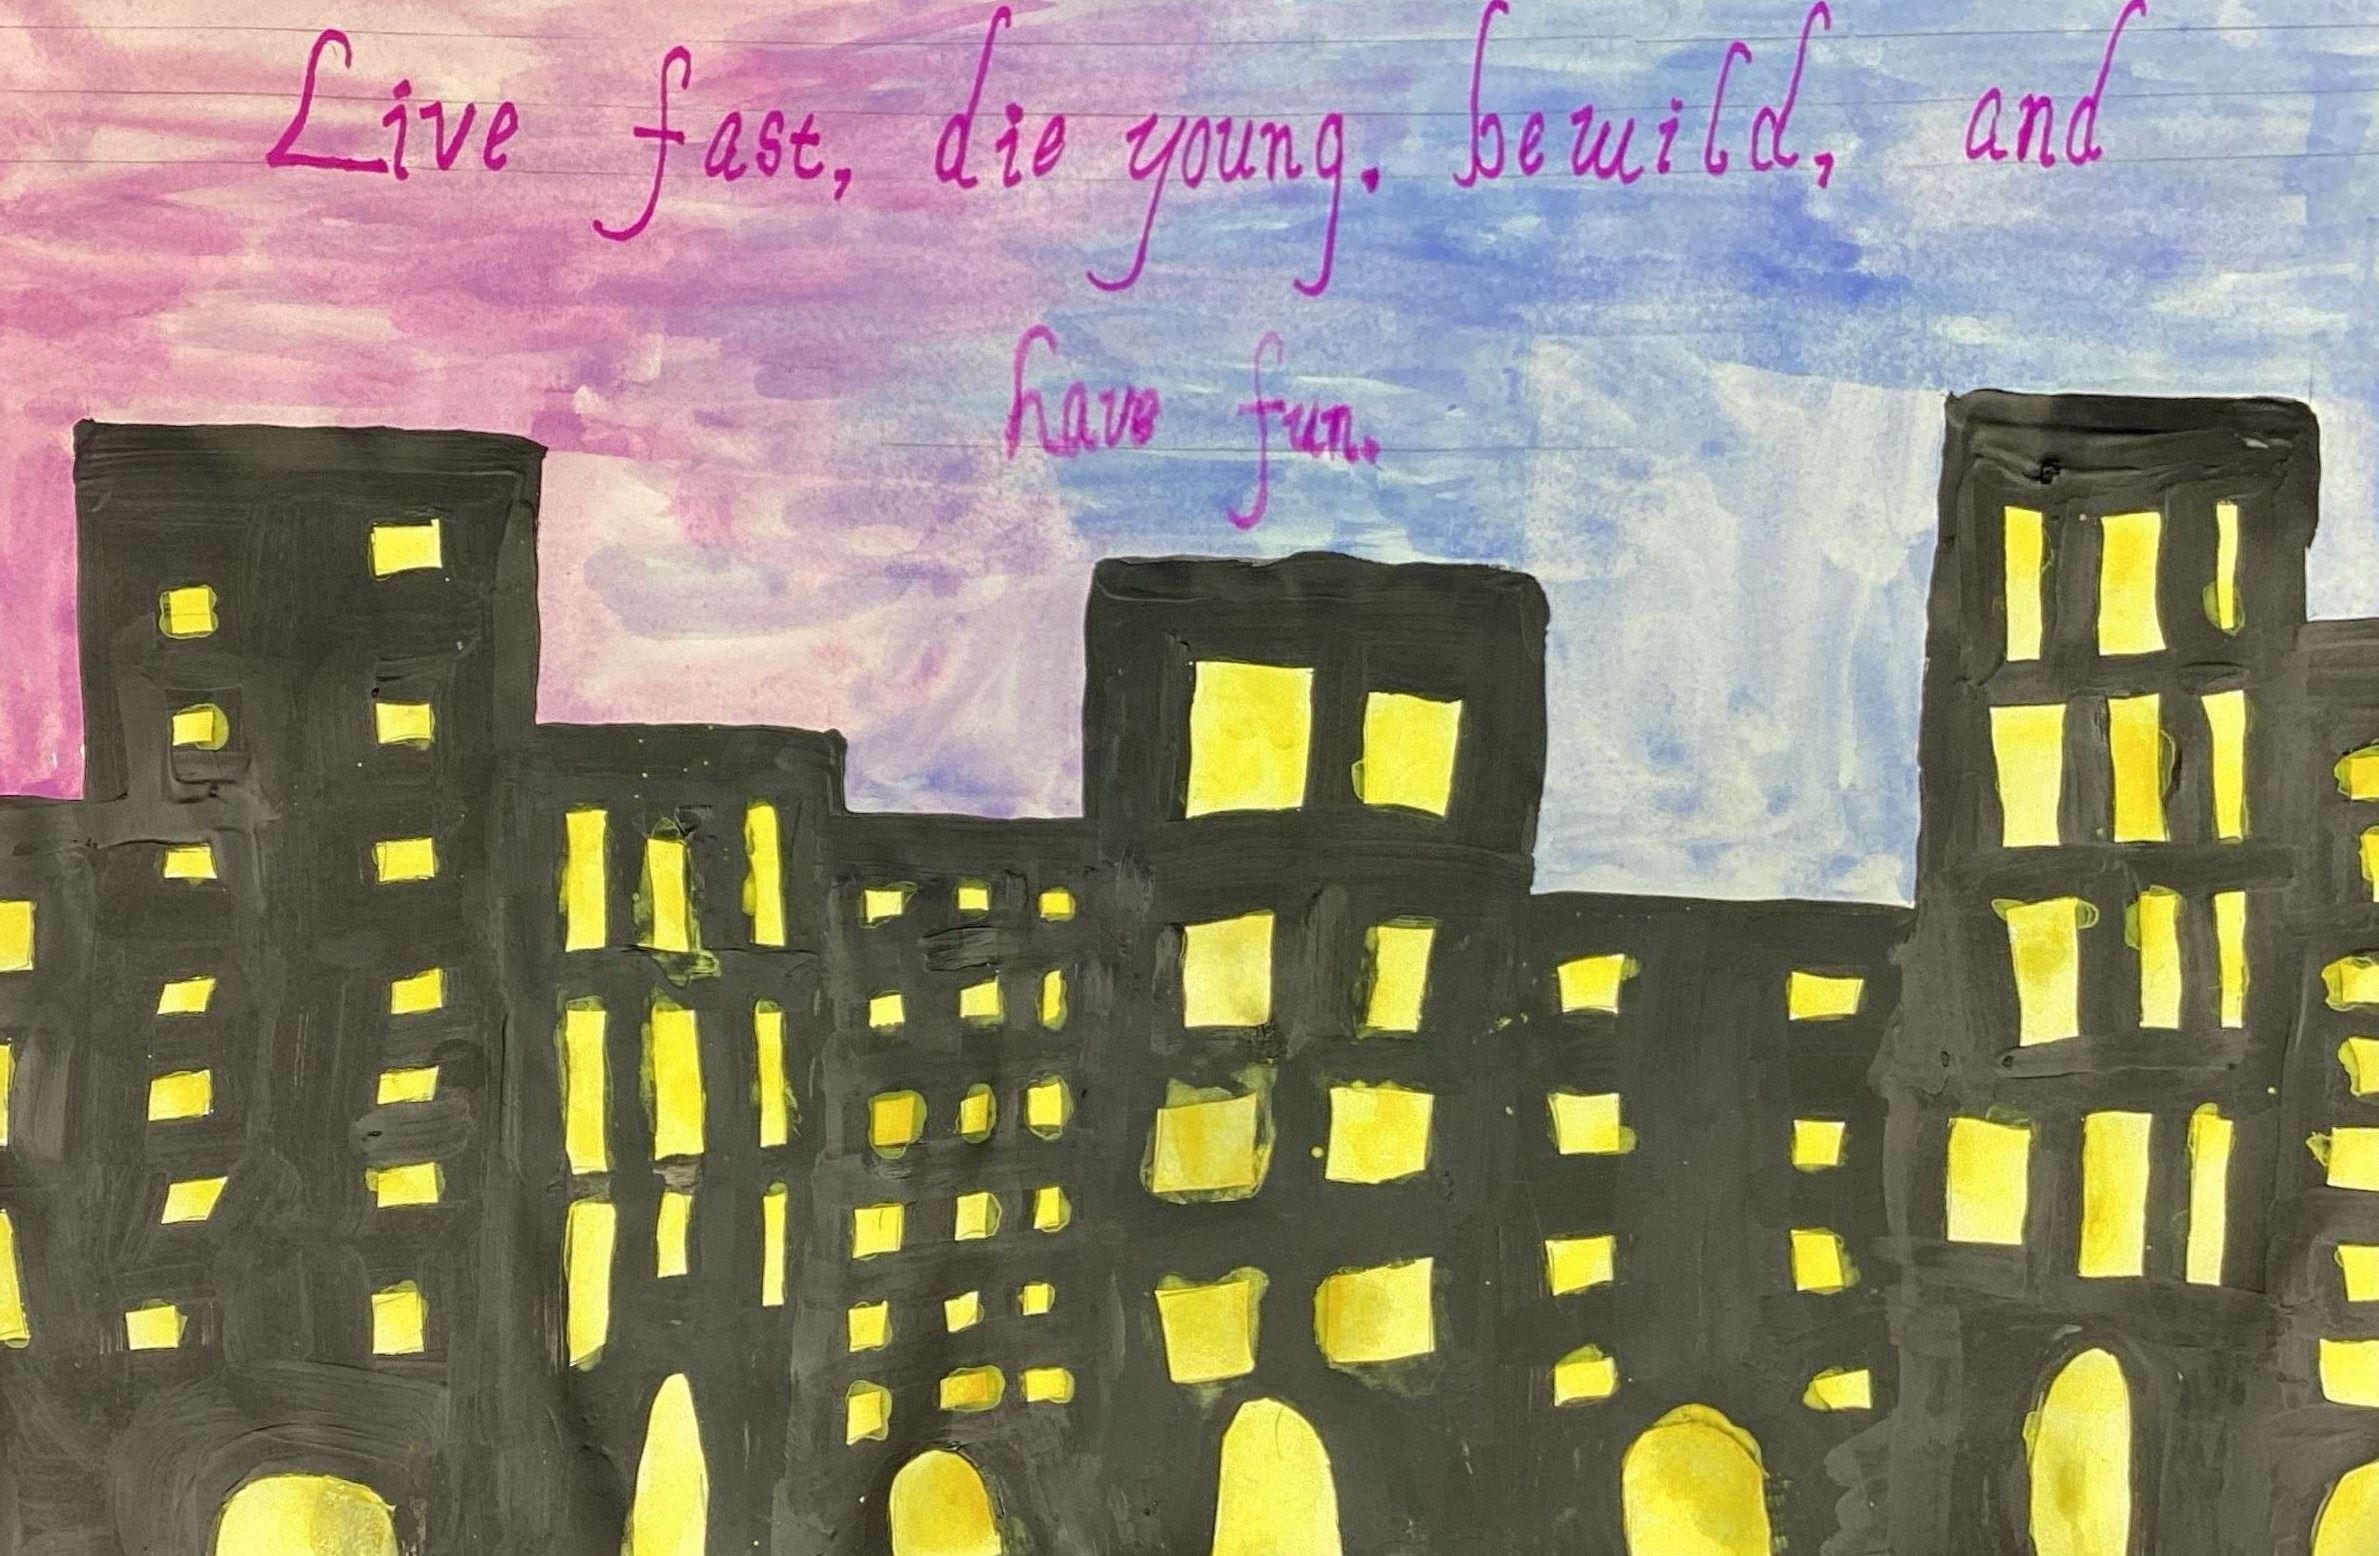 Live fast, die young. bewild, and
have fun.